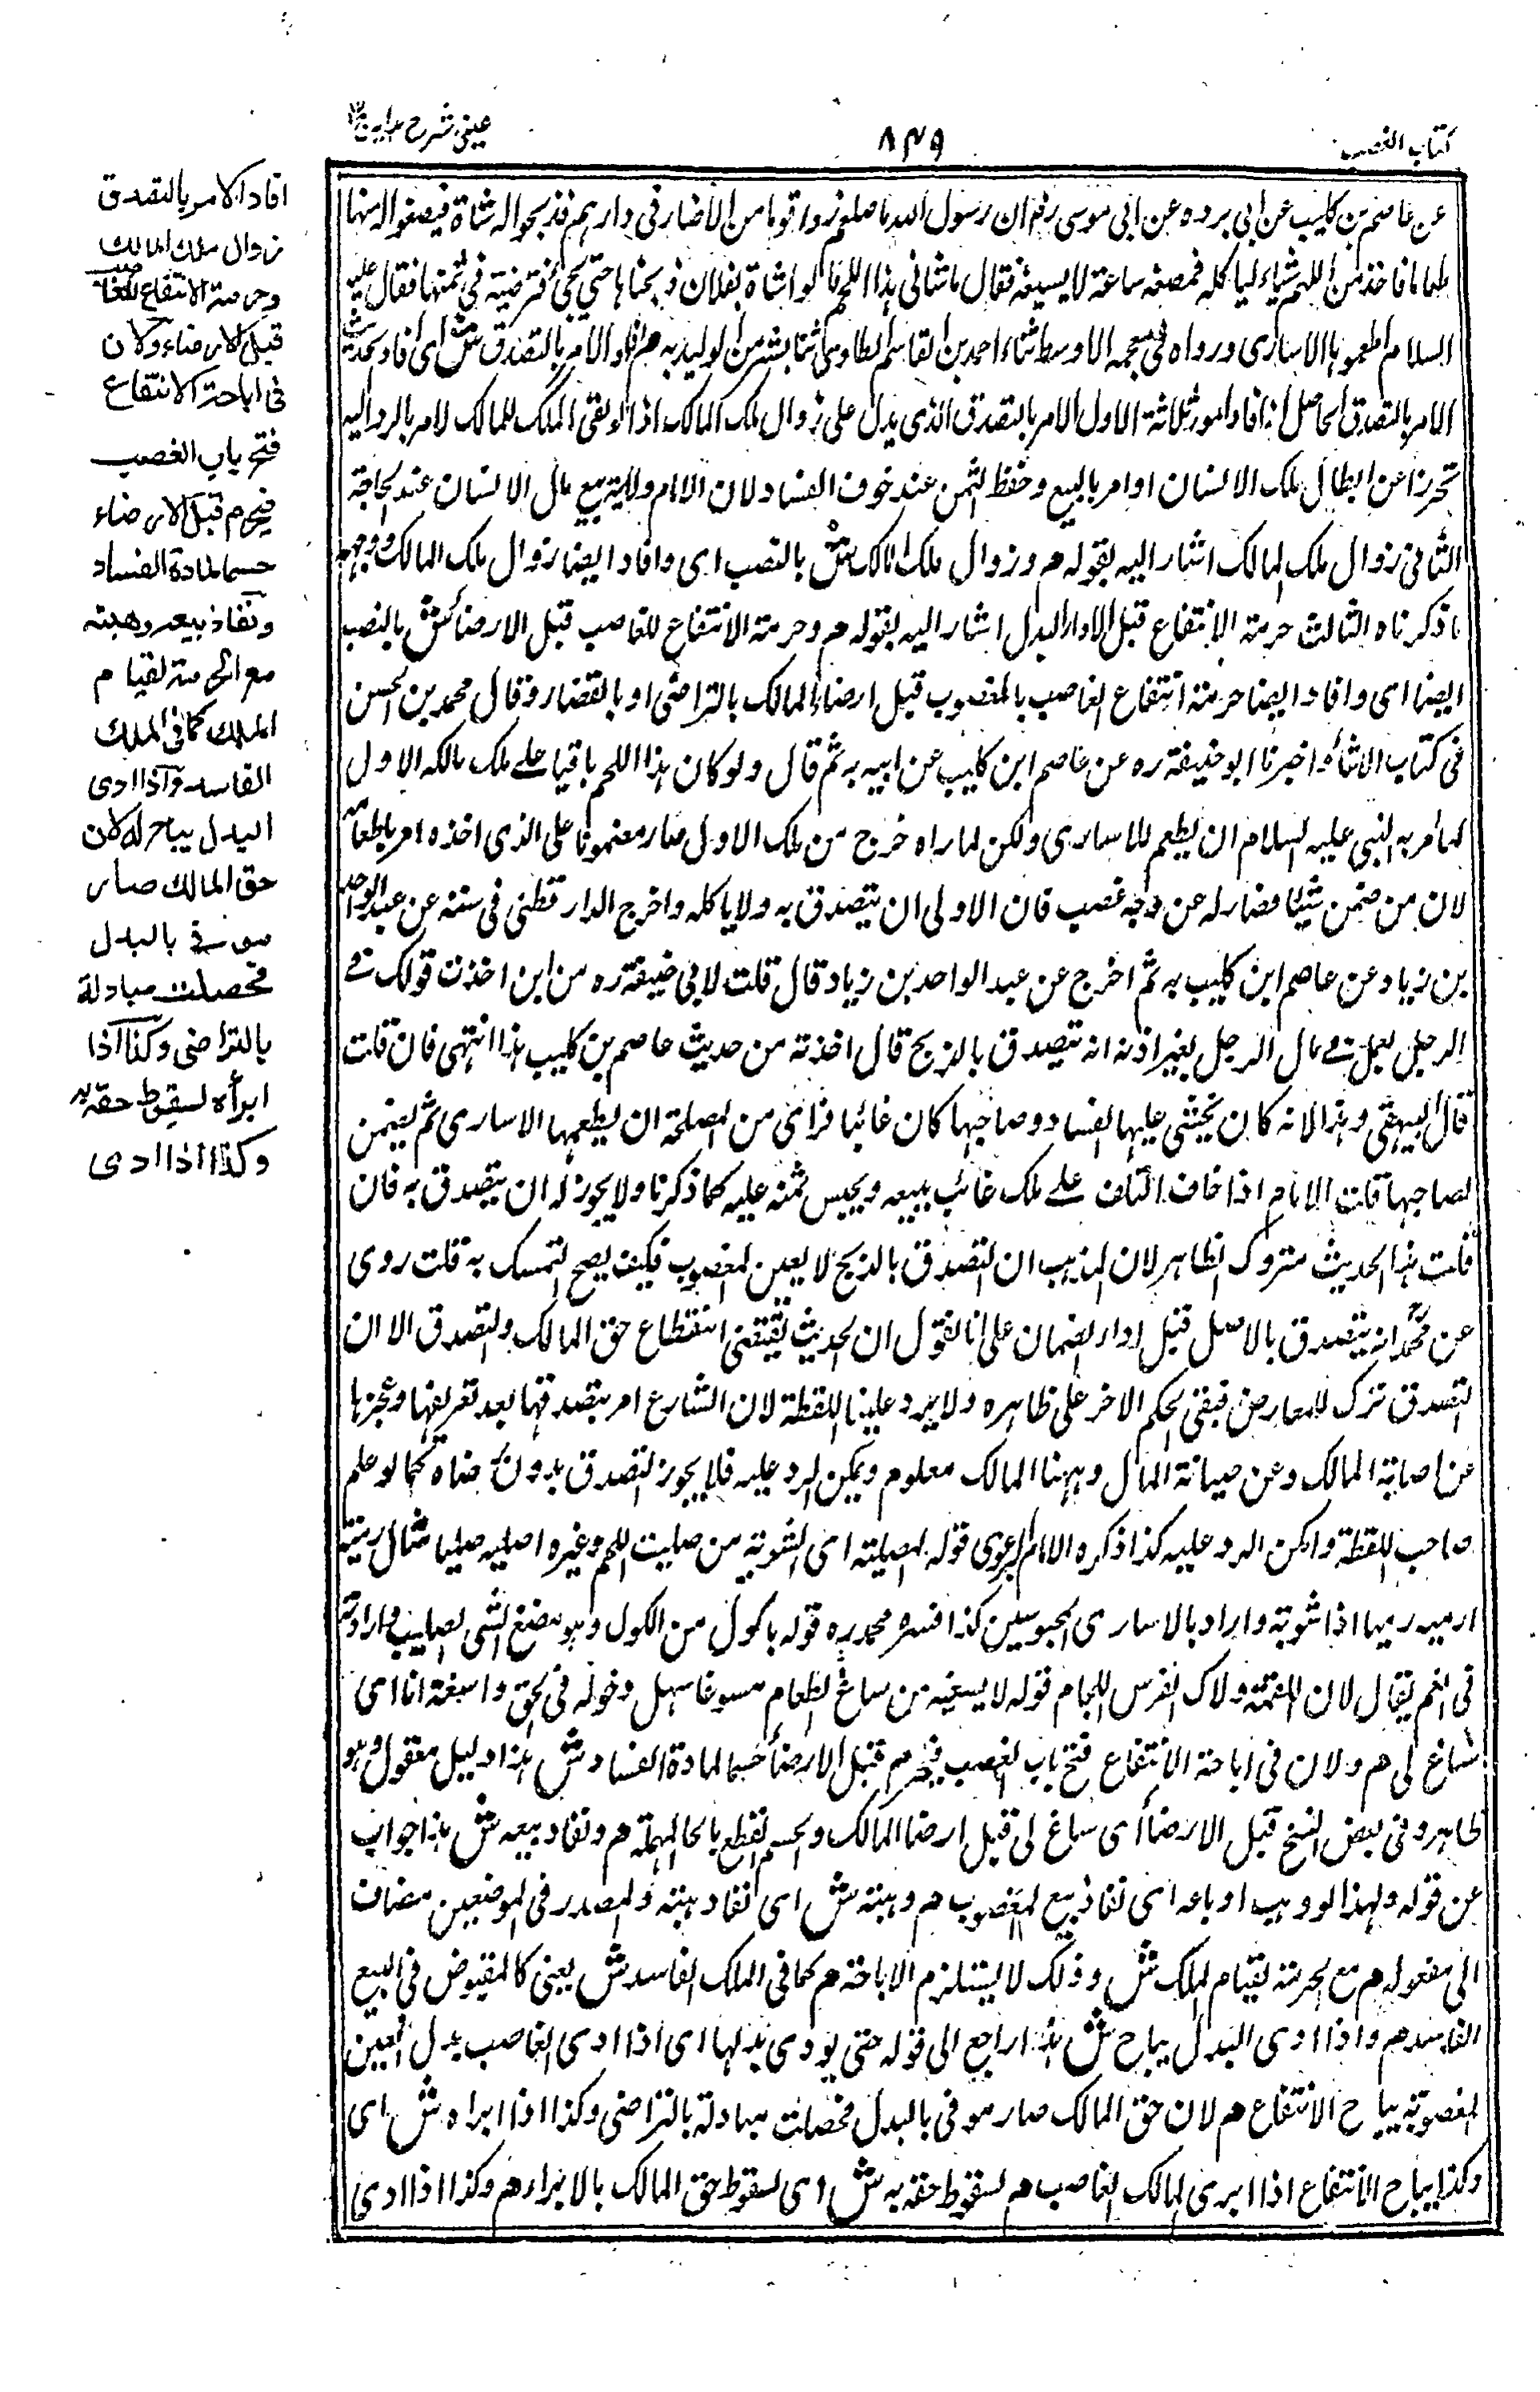 كتاب الغصب
٨٣٩
عينى شرح هدايه ج٣
عن عاصم بن كليب عن ابى برده عن ابى موسى رض ان رسول الله صلعم زار قوما من الانصار فى دارهم فذبحوا له شاة فصنعوا له منها
طعاما فاخذ من اللحم شيئا ليأكله فمضغه ساعة لا يسيغه فقال ما شانى هذا اللحم قالوا شاة لفلان ذبحناها حتى يجئ فنرضيه فى ثمنها فقال عليه
السلام اطعموها الاسارى ورواه فى معجمه الاوسط ثناء احمد بن القاسم الطاوسى ثنا بشر بن الوليد به هم افاد الامر بالتصدق ش اى افاد الحديث
الامر بالتصدق الحاصل انه افاد امور ثلاثة الاول الامر بالتصدق الذى يدل على زوال ملك المالك اذ لو بقى الملك للمالك لامر بالرد اليه
تحرزا عن ابطال ملك الانسان او امر بالبيع وحفظ الثمن عند خوف الفساد لان الامام ولاية بيع مال الانسان عند الحاجة
الثانى زوال ملك المالك اشار اليه بقوله هم وزوال ملك المالك ش بالنصب اى وافاد ايضا زوال ملك المالك ووجهه
ما ذكرناه الثالث حرمة الانتفاع قبل الاداء البدل اشار اليه بقوله هم وحرمة الانتفاع للغاصب قبل الارضاء ش بالنصب
ايضا اى وافاد ايضا حرمة انتفاع الغاصب بالمغصوب قبل ارضاء المالك بالتراضى او بالقضاء وقال محمد بن الحسن
فى كتاب الاثار اخبرنا ابو حنيفة ره عن عاصم ابن كليب عن ابيه به ثم قال ولو كان هذا اللحم باقيا على ملك مالكه الاول
لما أمر به النبى عليه السلام ان يطعم للاسارى ولكن لما راه خرج من ملك الاول صار مضمونا على الذى اخذه امر باطعامه
لان من ضمن شيئا فصار له عن وجه غصب فان الاولى ان يتصدق به ولا ياكله واخرج الدار قطنى فى سننه عن عبد الواحد
بن زياد عن عاصم ابن كليب به ثم اخرج عن عبد الواحد بن زياد قال قلت لابى حنيفة ره من اين اخذت قولك فى
الرجل يعمل فى مال الرجل بغير اذنه انه تتصدق بالربح قال اخذته من حديث عاصم بن كليب هذا انتهى فان قلت
قال البيهقى وهذا لانه كان يخشى عليها الفساد وصاحبها كان غائبا فراى من المصلحة ان يطعمها الاسارى ثم يضمن
لصاحبها قلت الامام اذا خاف التلف على ملك غائب يبيعه ويحبس ثمنه عليه كما ذكرنا ولا يجوز له ان يتصدق به فان
قلت هذا الحديث متروك الظاهر لان المذهب ان التصدق بالربح لا بعين المغصوب فكيف يصح التمسك به قلت روى
عن محمد انه يتصدق بالاصل قبل اداء الضمان على انا نقول ان الحديث يقتضى انقطاع حق المالك والتصدق الا ان
التصدق ترك للمعارض فبقى الحكم الاخر على ظاهره ولا يرد علينا اللقطة لان الشارع امر بتصدقها بعد تعريفها وعجزها
عن اصابة المالك وعن صيانة المال وههنا المالك معلوم ويمكن الرد عليه فلا يجوز التصدق بدون رضاه كما لو علم
صاحب اللقطة وامكن الرد عليه كذا ذكره الامام قوله المصلية اى المشوية من صليت اللحم وغيره اصليه صليا مثال رميته
ارميه رميا اذا شويته واراد بالاسارى المحبوسين كذا فسره محمد ره قوله يلوك من اللوك وهو مضغ الشى الصليب وادارته
فى الفم يقال لاك اللقمة ولاك الفرس اللجام قوله لا يسيغه من ساغ الطعام سوغا سهل دخوله فى الحلق واسغته انا اى
ساغ لى هم ولان فى اباحة الانتفاع فتح باب الغصب فيحرم قبل الارضاء حسما لمادة الفساد ش هذا دليل معقول وهو
ظاهر وفى بعض النسخ قبل الارضاء اى ساغ لى قبل ارضا المالك والحسم القطع بالحا المهملة هم ونفاذ بيعه ش هذا جواب
عن قوله ولهذا لو وهب او باعه اى نفاذ بيع المغصوب هم وهبته ش اى نفاذ هبته والمصدر فى الموضعين مضاف
الى مفعوله هم مع الحرمة لقيام الملك ش وذلك لا يستلزم الاباحة هم كما فى الملك الفاسد ش يعنى كالمقبوض فى البيع
الفاسد هم واذا ادى البدل يباح ش هذا راجع الى قوله حتى يودى بدلها اى اذا ادى الغاصب بدل العين
المغصوبة يباح الانتفاع هم لان حق المالك صار موفى بالبدل فحصلت مبادلة بالتراضى وكذا اذا ابراه ش اى
وكذا يباح الانتفاع اذا ابرى المالك الغاصب هم لسقوط حقه به ش اى لسقوط حق المالك بالابراء هم وكذا اذا ادى
افاد الامر بالتصدق
زوال ملك المالك
وحرمة الانتفاع للغاصب
قبل الارضاء ولان
فى اباحة الانتفاع
فتح باب الغصب
فيحرم قبل الارضاء
حسما لمادة الفساد
ونفاذ بيعه وهبته
مع الحرمة لقيام
الملك كما فى الملك
الفاسد واذا ادى
البدل يباح له لان
حق المالك صار
موفى بالبدل
فحصلت مبادلة
بالتراضى وكذا اذا
ابرأه لسقوط حقه به
وكذا اذا ادى